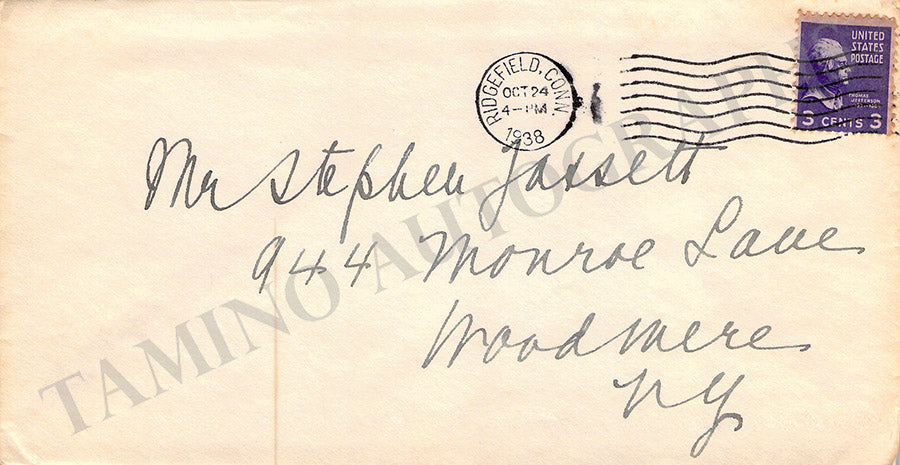 RIDGEFIELD, CONN.
OCT 24
4-PM
1938
UNITED
STATES
POSTAGE
THOMAS
JEFFERSON
3 CENTS 3
Mr Stephen Jassett
944 Monroe Lane
Woodmere
NY
TAMINO AUTOGRAPHS